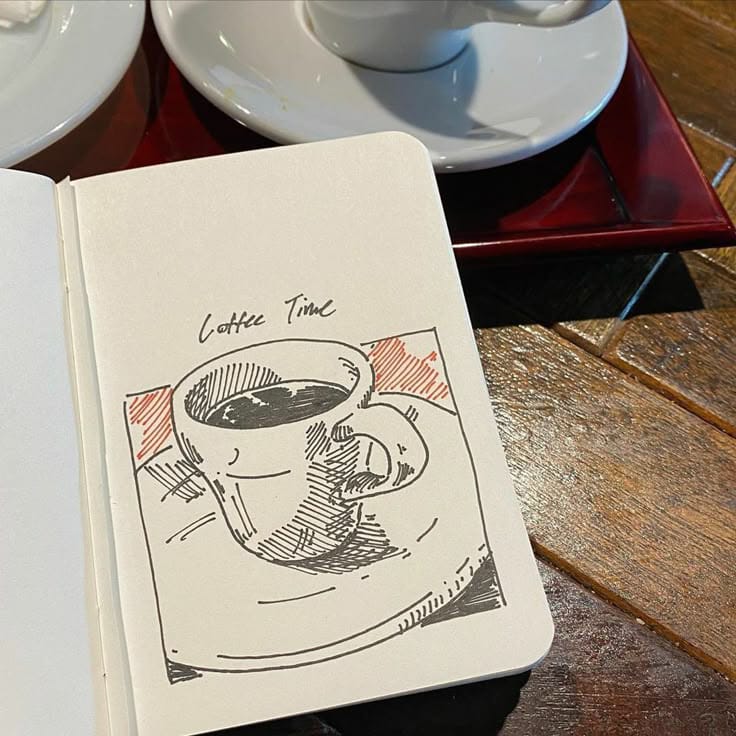 Coffee Time